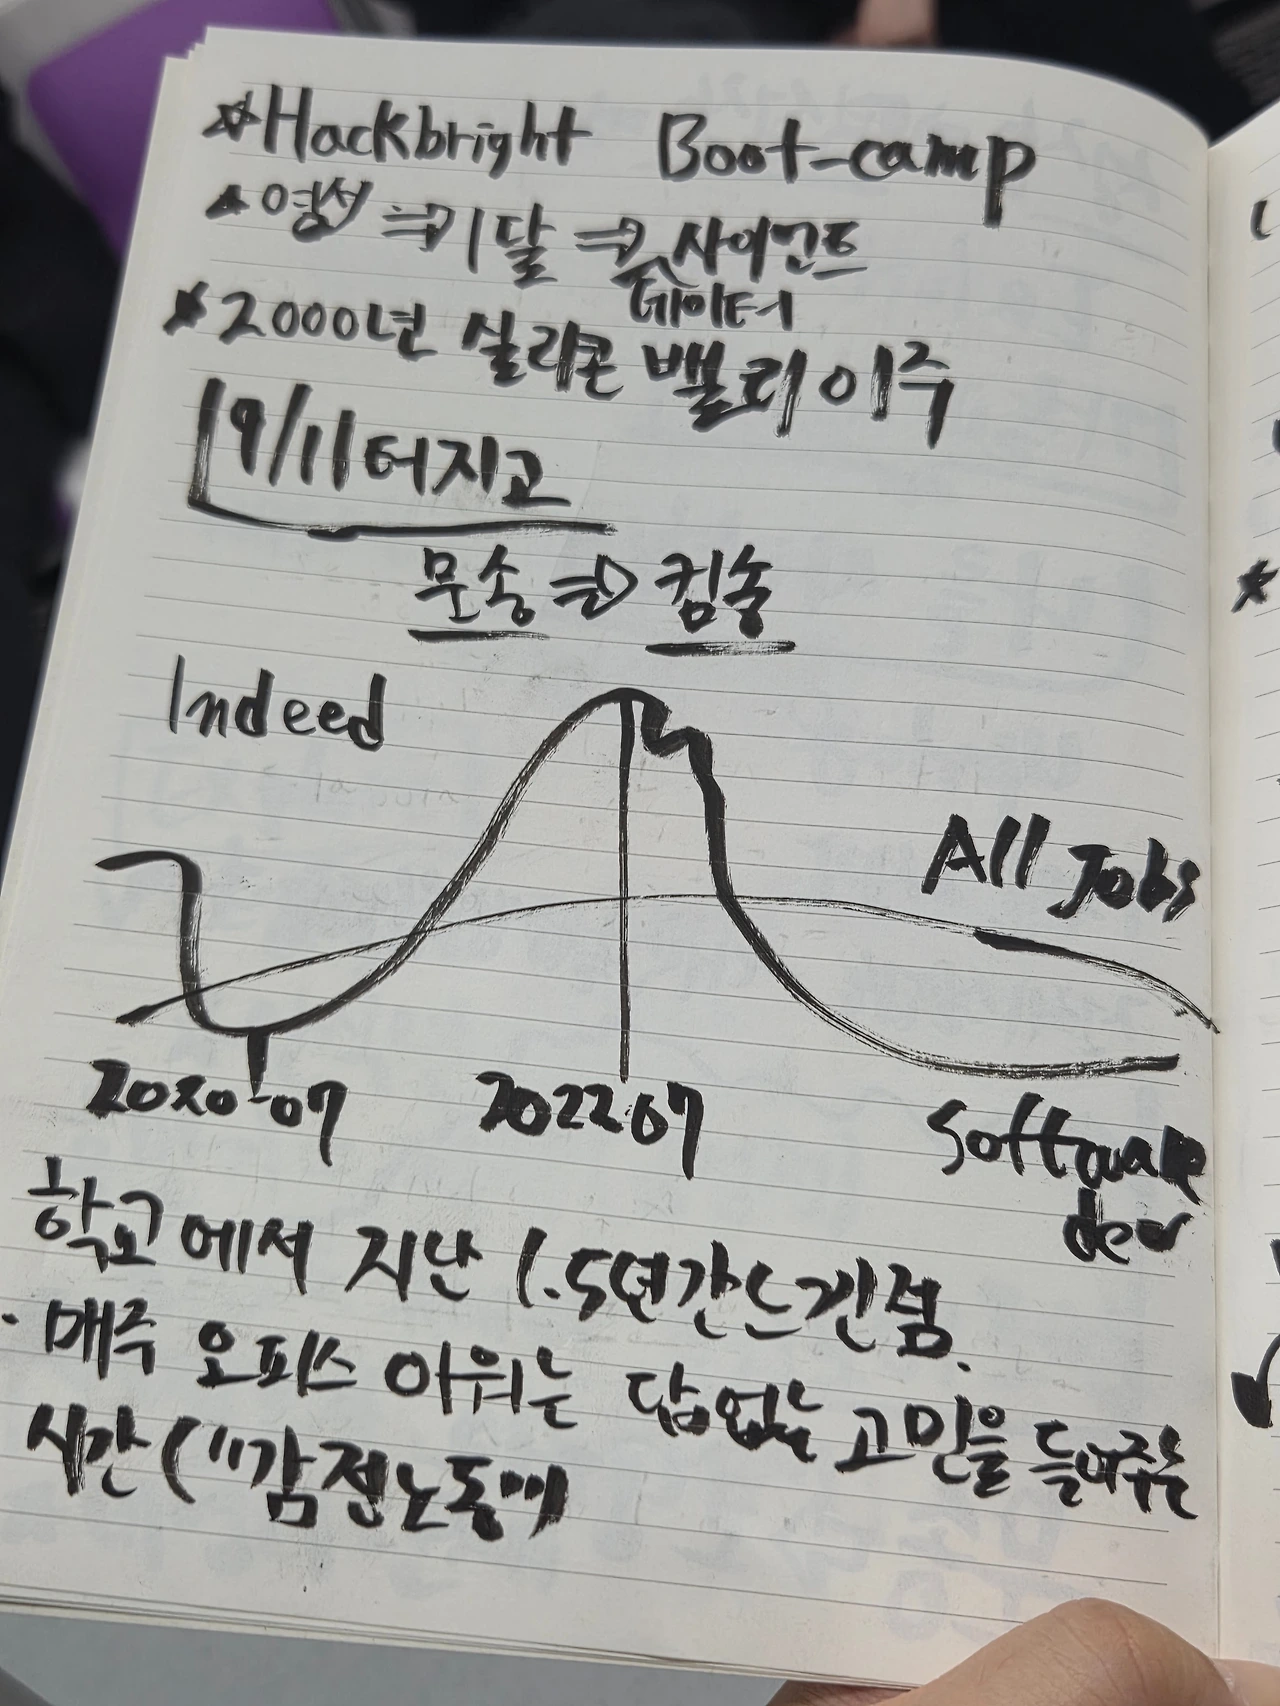 ☆Hackbright Boot-camp
영성 ⇒기달 ⇒ 사이언트
데이터
★2000년 실리콘 밸리 이주
9/11 터지고
문송 ⇒ 컴송
Indeed
All Jobs
2020-07
2022.07
Software
dev
학교에서 지난 1.5년간 느낀점.
· 매주 오피스 아워는 답 없는 고민을 들어주는
시간 ("감정노동"